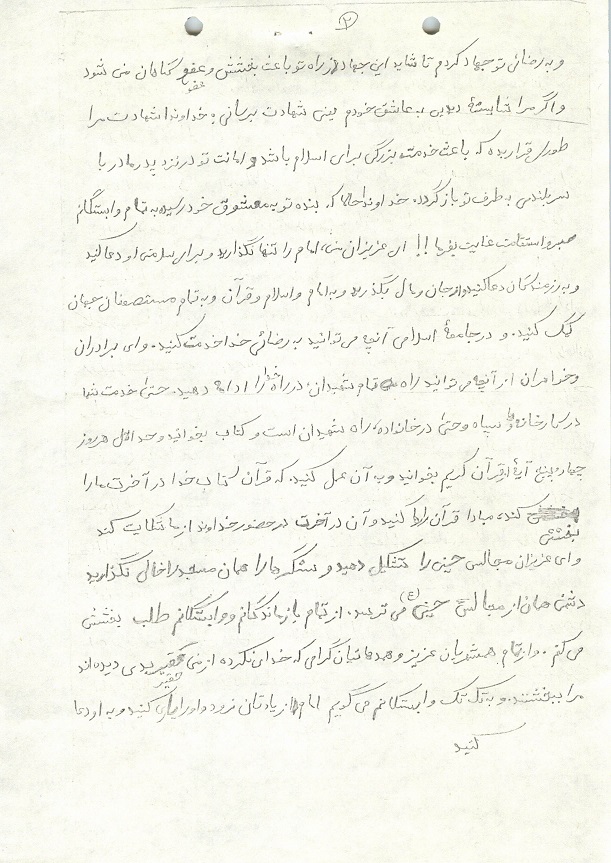 ۲
و به رضائی تو جهاد کردم تا شاید این جهاد در راه تو باعث بخشش و عفو گناهان من شود
عفو
و اگر مرا شایستهٔ دیدی به عاشق خودم یعنی شهادت برسانی، خداوندا شهادت مرا
طوری قرار بده که باعث خدمت بزرگی برای اسلام باشد و امانت تو در نزد پدر مادر با
سربلندی به طرف تو باز گردد. خداوندا حالا که بنده تو به معشوق خود رسیده به تمام وابستگانم
صبر و استقامت عنایت بفرما !! ای عزیزان من، امام را تنها نگذارید و برای سلامتی او دعا کنید
و به رزمندگان دعا کنید و از جان و مال بگذرید و به امام و اسلام و قرآن و به تمام مستضعفان جهان
کمک کنید. و در جامعهٔ اسلامی آنچه می توانید به رضائی خدا خدمت کنید. و ای برادران
و خواهران از آنچه می توانید راه تمام شهیدان در راه خدا را ادامه دهید. حتیٰ خدمت شما
در کارخانه و یا سپاه و حتیٰ در خانواده، راه شهیدان است و کتاب بخوانید و حداقل هر روز
چهار پنج آیهٔ از قرآن کریم بخوانید و به آن عمل کنید. که قرآن کتاب خدا در آخرت ما را
کند، مبادا قرآن را رها کنید و آن در آخرت در حضور خداوند از ما شکایت کند
بخششی
و ای عزیزان مجالس حسینی را تشکیل دهید و سنگرها را همان مسجد را خالی نگذارید
دشمن همان از مجالس حسینی (ع) می ترسد. از تمام بازماندگانم و وابستگانم طلب بخشش
می کنم. و از تمام همشهریان عزیز و همدمانیان گرامی که خدای نکرده از من حقیر بدی دیده اند
حقیر
مرا ببخشند. و به تک تک وابستگانم می گویم امام از یادتان نرود و او را یاری کنید و به او دعا
کنید